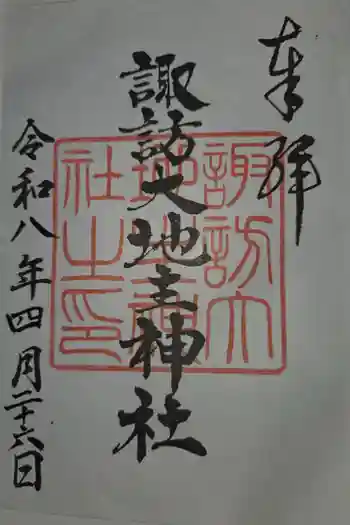 奉拝
諏訪大地主神社
諏訪大地主神社之印
令和八年四月二十六日